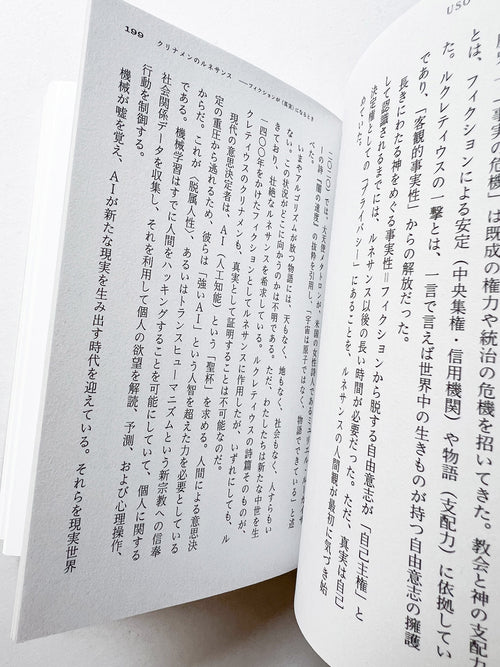 USO
「事実の危機」は既成の権力や政治の危機を招いてきた。教会と神の支配力
とは、フィクションによる安定（中央集権・信用機関）や物語（支配力）に依拠してい
た。ルクレティウスの一撃とは、一言で言えば世界中の生きものが持つ自由意志の擁護
であり、「客観的事実性」からの解放だった。
長きにわたる神をめぐる事実性＝フィクションから脱する自由意志が「自己主権」と
して認識されるまでには、ルネサンス以後の長い時間が必要だった。ただ、真実は自己
決定権としての「プライバシー」にあることを、ルネサンスの人間観が最初に気づき始
めていた。
199
クリナメンのルネサンス ──フィクションが〈真実〉になるとき
二〇）では、大天使メタトロンが、米国の女性詩人であるミュリエル・
ーの詩「闇の速度」の抜粋を引用し、「宇宙は原子ではなく、物語でできている」と述
べた。
いまやアルゴリズムが放つ物語には、天もなく、地もなく、社会もなく、人すらもい
ない。この状況がどこに向かうのかは不明である。ただ、わたしたちは新たな中世を生
きており、壮絶なルネサンスを希求している。ルクレティウスの詩篇そのものが、
一四〇〇年をかけたフィクションとしてルネサンスに作用したが、いずれにしても、ル
クレティウスのクリナメンも、真実として証明することは不可能なのだ。
現代の意思決定者は、AI（人工知能）という「聖杯」を求める。人間による意思決
定の重圧から逃れるため、彼らは「強いAI」という人智を超えた力を必要としている
からだ。これが〈脱属人性〉、あるいはトランスヒューマニズムという新宗教への信奉
である。機械学習はすでに人間をハッキングすることを可能にしていて、個人に関する
社会関係データを収集し、それを利用して個人の欲望を解読、予測、および心理操作、
行動を制御する。
機械が嘘を覚え、AIが新たな現実を生み出す時代を迎えている。それらを現実世界